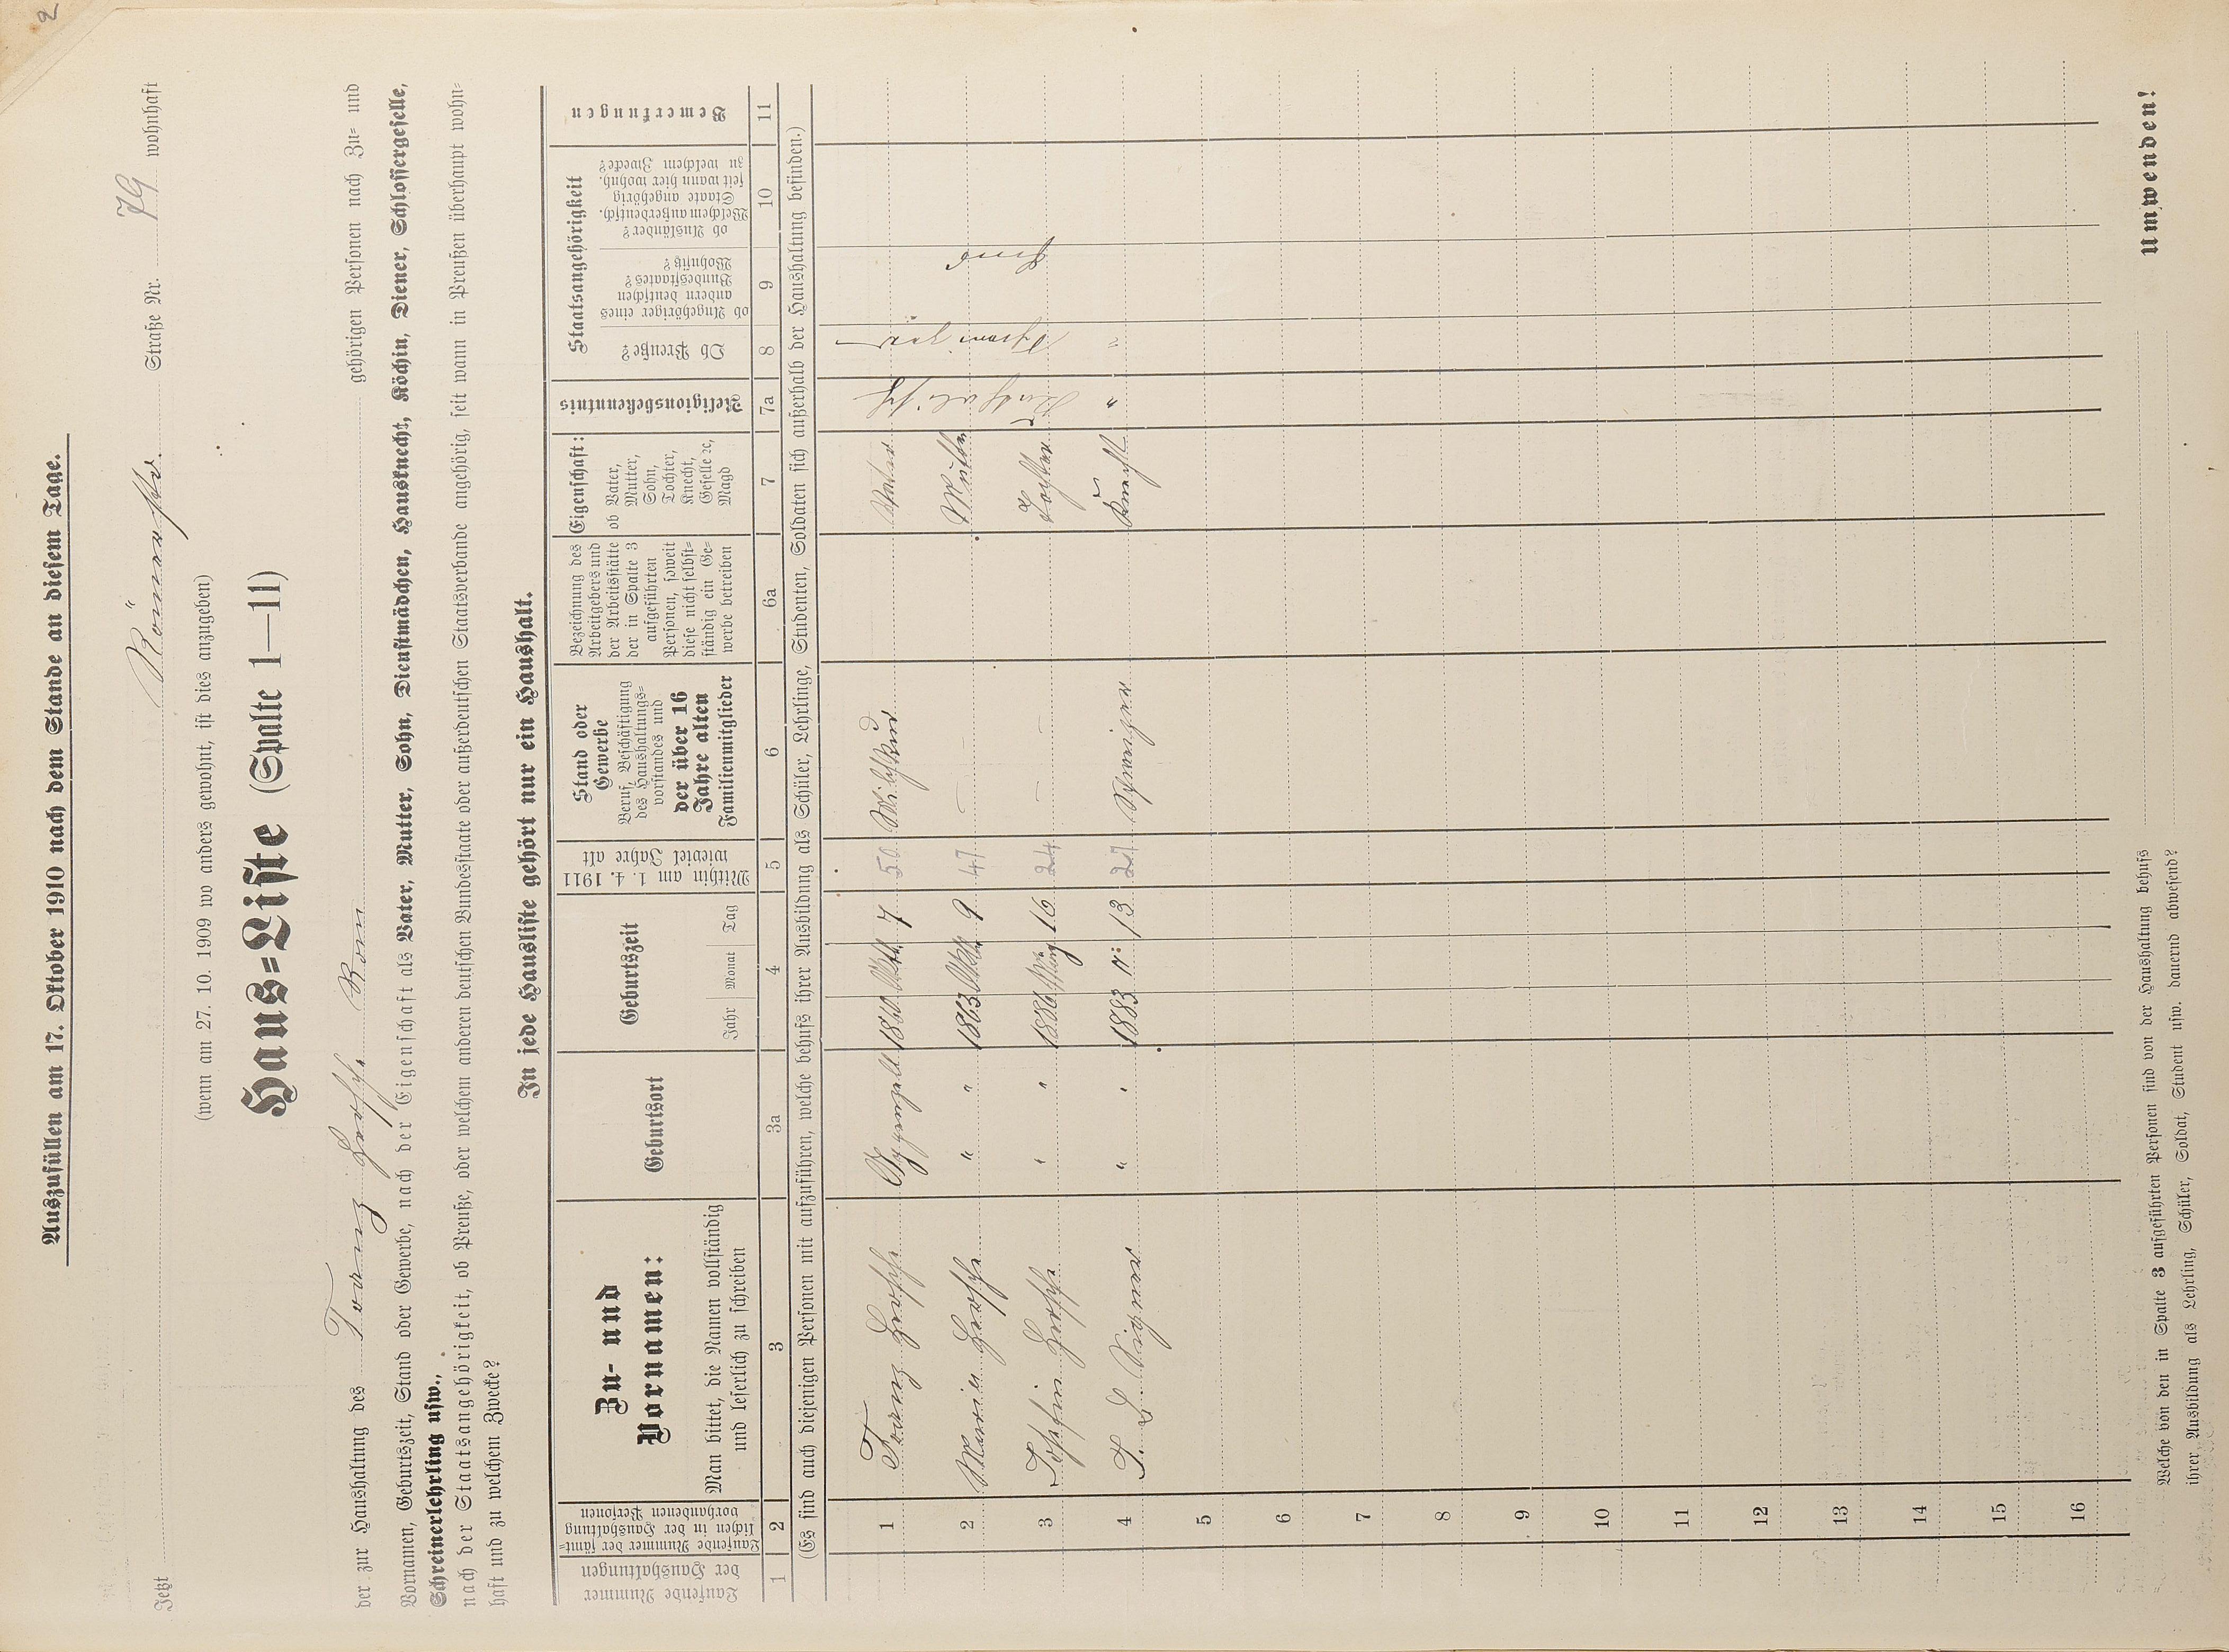 2
Auszufüllen am 17. Oktober 1910 nach dem Stande an diesem Tage.
Jetzt Römerstr. Straße Nr. 79 wohnhaft
(wenn am 27. 10. 1909 wo anders gewohnt, ist dies anzugeben)
Haus=Liste (Spalte 1—11)
der zur Haushaltung des Franz gehörigen Personen nach Zu= und
Vornamen, Geburtszeit, Stand oder Gewerbe, nach der Eigenschaft als Vater, Mutter, Sohn, Dienstmädchen, Hausknecht, Köchin, Diener, Schlossergeselle,
Schreinerlehrling usw.,
nach der Staatsangehörigkeit, ob Preuße, oder welchem anderen deutschen Bundesstaate oder außerdeutschen Staatsverbande angehörig, seit wann in Preußen überhaupt wohn=
haft und zu welchem Zwecke?
In jede Hausliste gehört nur ein Haushalt.
Laufende Nummer der Haushaltungen
Laufende Nummer der sämt=lichen in der Haushaltung vorhandenen Personen
Zu- und Vornamen:
Man bittet, die Namen vollständig und leserlich zu schreiben
Geburtsort
Geburtszeit
Jahr Monat Tag
Mithin am 1. 4. 1911 wieviel Jahre alt
Stand oder Gewerbe
Beruf, Beschäftigung des Haushaltungs=vorstandes und der über 16 Jahre alten Familienmitglieder
Bezeichnung des Arbeitgebers und der Arbeitsstätte der in Spalte 3 aufgeführten Personen, soweit diese nicht selbst=ständig ein Ge=werbe betreiben
Eigenschaft:
ob Vater, Mutter, Sohn, Tochter, Knecht, Geselle ec, Magd
Religionsbekenntnis
Staatsangehörigkeit
Ob Preuße?
ob Angehöriger eines andern deutschen Bundesstaates? Wohnsitz?
ob Ausländer? Welchem außerdeutsch. Staate angehörig seit wann hier wohnh. zu welchem Zwecke?
Bemerkungen
1 2 3 3a 4 5 6 6a 7 7a 8 9 10 11
(Es sind auch diejenigen Personen mit aufzuführen, welche behufs ihrer Ausbildung als Schüler, Lehrlinge, Studenten, Soldaten sich außerhalb der Haushaltung befinden.)
1 Franz Appenzell 1860 Okt. 7 50 Vater
2 Marie " " 1863 Okt. 9 47 — — Mutter
3 " " 1886 März 16 24 — — Tochter
4 " " 1883 " 13 27 Schweizer Knecht " "
5
6
7
8
9
10
11
12
13
14
15
16
Welche von den in Spalte 3 aufgeführten Personen sind von der Haushaltung behufs
ihrer Ausbildung als Lehrling, Schüler, Soldat, Student usw. dauernd abwesend?
Umwenden!